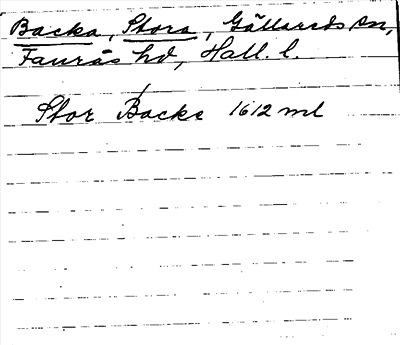 Backa, Stora, Gällareds sn,
Faurås hd, Hall. l.
Stor Backe 1612 ml